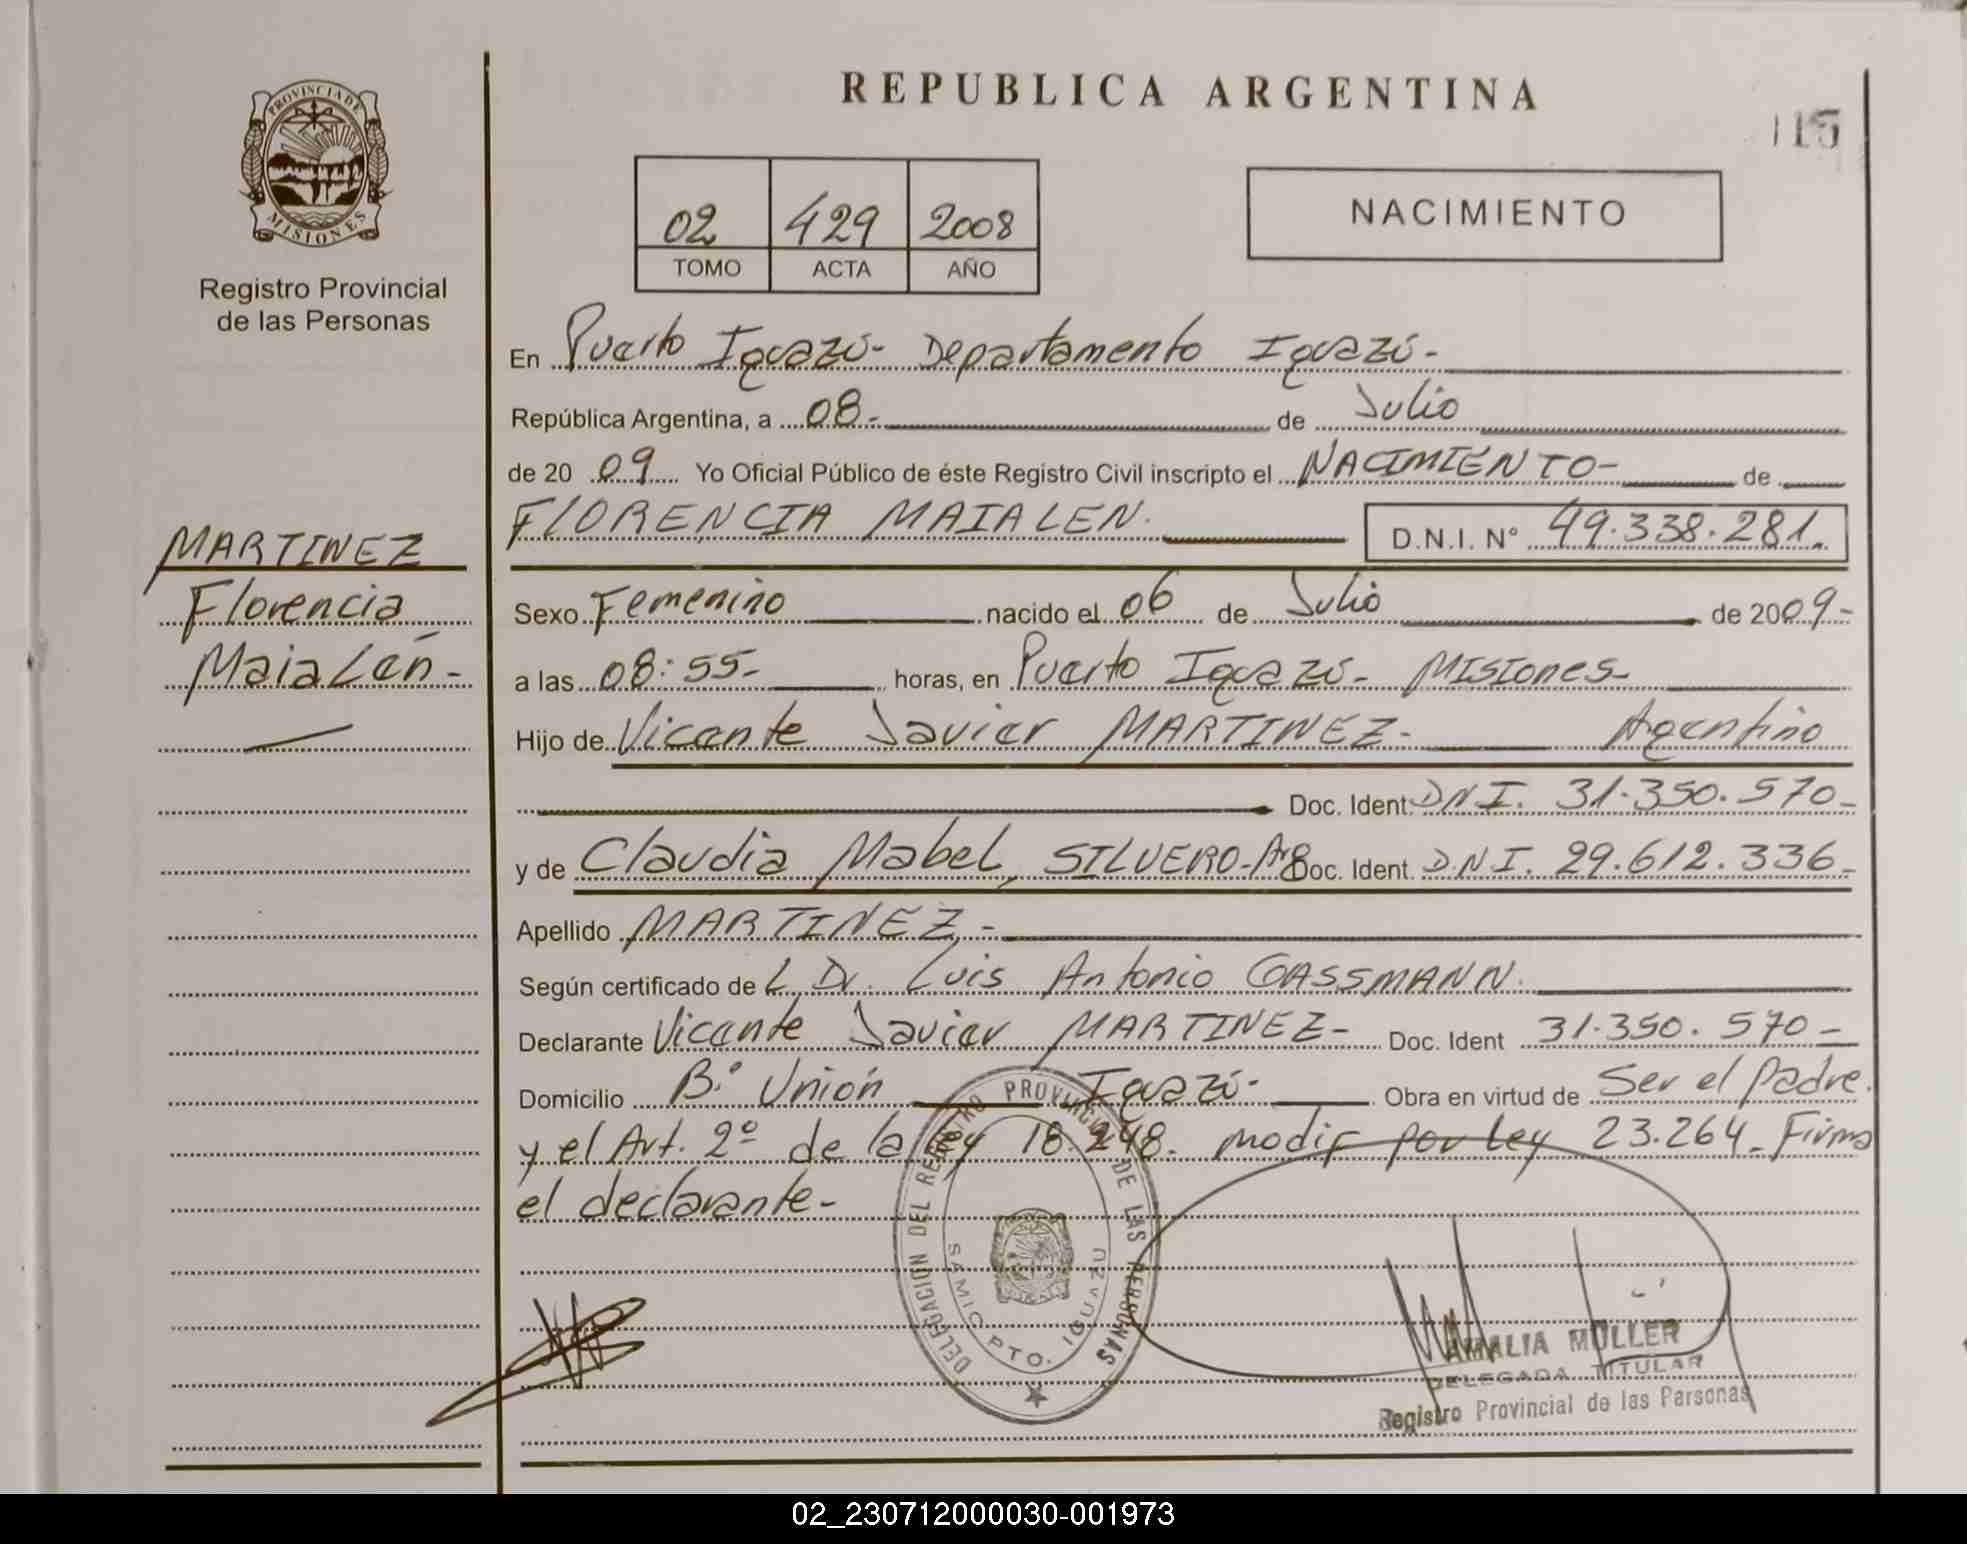 REPUBLICA ARGENTINA
115
PROVINCIA DE MISIONES
Registro Provincial
de las Personas
02 429 2008
TOMO ACTA AÑO
NACIMIENTO
En Puerto Iguazú- Departamento Iguazú-
República Argentina, a 08- de Julio
de 20 09 Yo Oficial Público de éste Registro Civil inscripto el NACIMIENTO- de
FLORENCIA MAIALEN. D.N.I. N° 49.338.281.
MARTINEZ
Florencia
Maialen-
Sexo Femenino nacido el 06 de Julio de 2009-
a las 08:55- horas, en Puerto Iguazú- Misiones-
Hijo de Vicente Javier MARTINEZ- Agentino
Doc. Ident. DNI. 31.350.570-
y de Claudia Mabel, SILVERO-Arg Doc. Ident. D.N.I. 29.612.336-
Apellido MARTINEZ-
Según certificado de L Dr. Luis Antonio GASSMANN.
Declarante Vicente Javier MARTINEZ- Doc. Ident 31.350.570-
Domicilio B.° Unión Iguazú- Obra en virtud de Ser el Padre.
y el Art. 2º de la Ley 18.248. modif por Ley 23.264- Firma
el declarante-
DELEGACION DEL REGISTRO PROVINCIAL DE LAS PERSONAS
SAMIC PTO. IGUAZU
AMALIA MULLER
DELEGADA TITULAR
Registro Provincial de las Personas
02_230712000030-001973